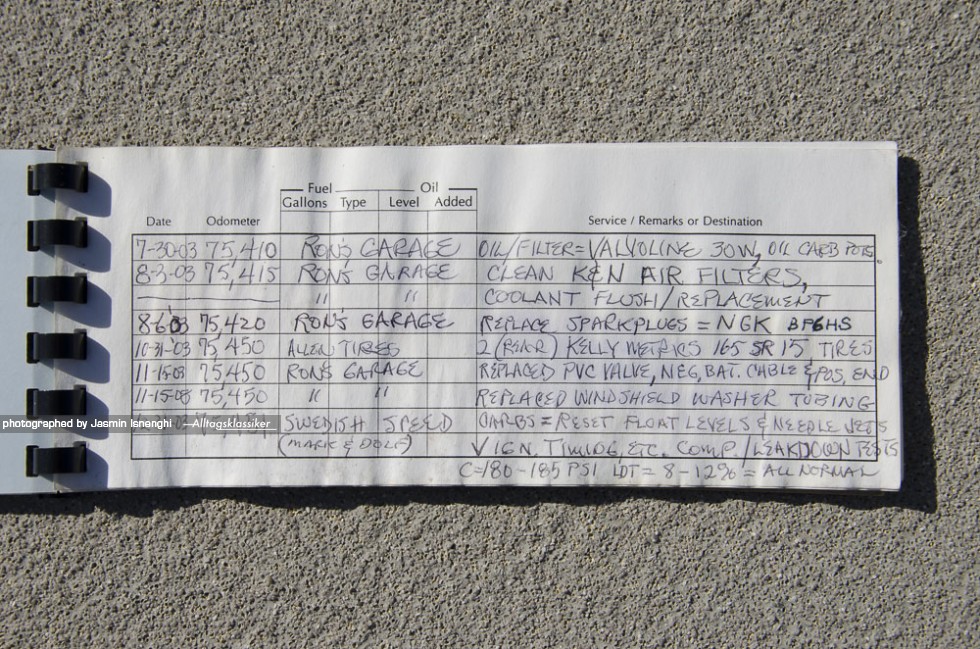 Fuel Oil
Gallons Type Level Added
Date Odometer Service / Remarks or Destination
7-30-03 75,410 RON'S GARAGE OIL/FILTER=VALVOLINE 30W, OIL CARB POTS.
8-3-03 75,415 RON'S GARAGE CLEAN K&N AIR FILTERS,
" " COOLANT FLUSH/REPLACEMENT
8-6-03 75,420 RON'S GARAGE REPLACE SPARKPLUGS = NGK BP6HS
10-31-03 75,450 ALLEN TIRES 2 (REAR) KELLY METRICS 165 SR 15 TIRES
11-15-03 75,450 RON'S GARAGE REPLACED PVC VALVE, NEG, BAT. CABLE & POS, END
11-15-03 75,450 " " REPLACED WINDSHIELD WASHER TUBING
SWEDISH SPEED CARBS = RESET FLOAT LEVELS & NEEDLE JETS
(MARK & DOLF) √ IGN. TIMING, ETC. COMP./LEAKDOWN TESTS
C=180-185 PSI LDT = 8-12% = ALL NORMAL
photographed by Jasmin Isnenghi – Alltagsklassiker